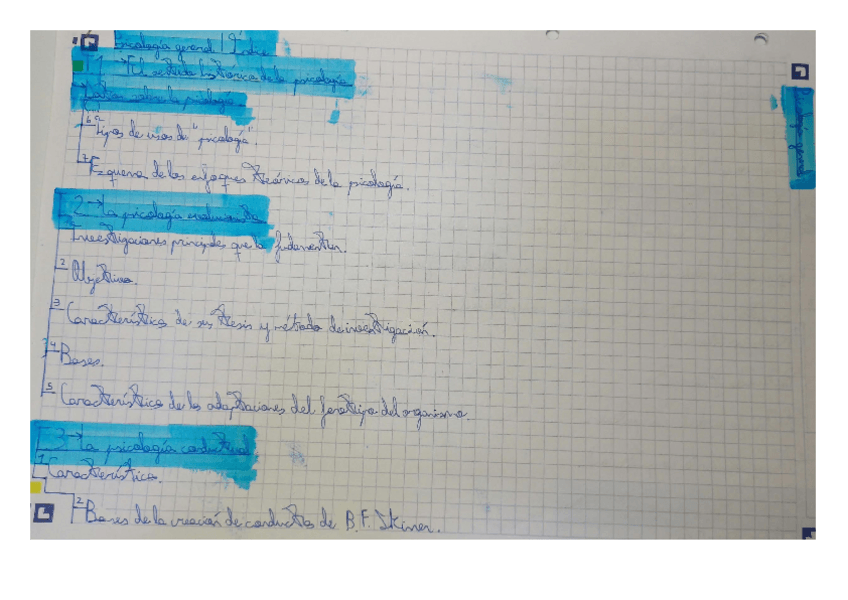 Psicología general | Índice
1 → El estudio histórico de la psicología
Datos sobre la psicología
Tipos de usos de "psicología".
Psicología general
2 Esquema de los enfoques teóricos de la psicología.
2 → La psicología evolucionista
Investigaciones principales que la fundamentan.
2 Objetivos.
3 Características de sus tesis y método de investigación.
4 Bases.
5 Características de las adaptaciones del fenotipo del organismo.
3 → La psicología conductual
1 Características.
2 Bases de la creación de conductas de B.F. Skiner.